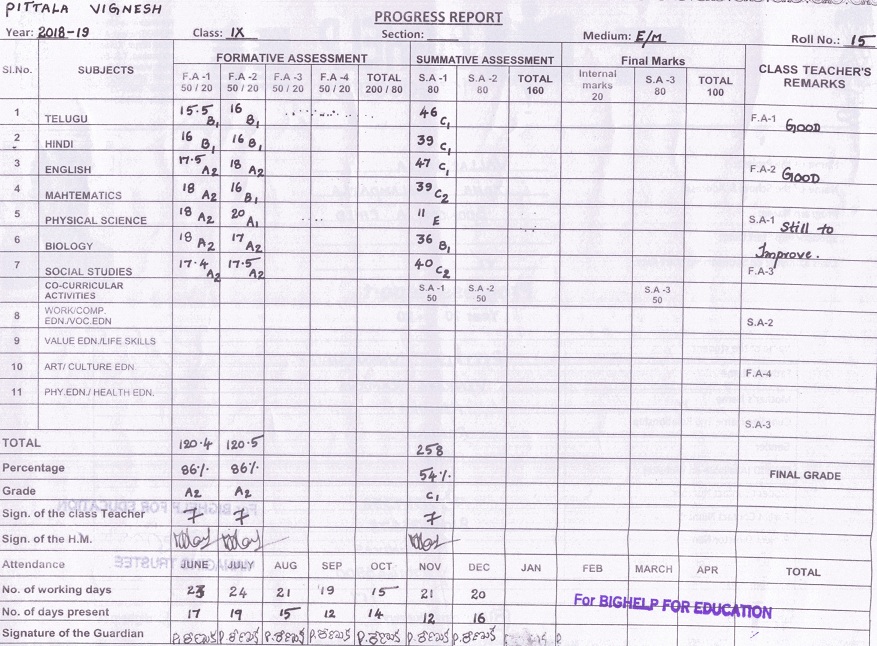 PITTALA VIGNESH
PROGRESS REPORT
Year: 2018-19 Class: IX Section: Medium: E/M Roll No.: 15
Sl.No. SUBJECTS FORMATIVE ASSESSMENT SUMMATIVE ASSESSMENT Final Marks CLASS TEACHER'S REMARKS
F.A -1 50 / 20 F.A -2 50 / 20 F.A -3 50 / 20 F.A -4 50 / 20 TOTAL 200 / 80 S.A -1 80 S.A -2 80 TOTAL 160 Internal marks 20 S.A -3 80 TOTAL 100
1 TELUGU 15.5 B1 16 B1 46 C1 F.A-1 GOOD
2 HINDI 16 B1 16 B1 39 C1
3 ENGLISH 17.5 A2 18 A2 47 C1 F.A-2 GOOD
4 MAHTEMATICS 18 A2 16 B1 39 C2
5 PHYSICAL SCIENCE 18 A2 20 A1 11 E S.A-1 Still to
6 BIOLOGY 18 A2 17 A2 36 B1 Improve.
7 SOCIAL STUDIES 17.4 A2 17.5 A2 40 C2 F.A-3
CO-CURRICULAR ACTIVITIES S.A -1 50 S.A -2 50 S.A -3 50
8 WORK/COMP. EDN./VOC.EDN S.A-2
9 VALUE EDN./LIFE SKILLS
10 ART/ CULTURE EDN. F.A-4
11 PHY.EDN./ HEALTH EDN.
S.A-3
TOTAL 120.4 120.5 258
Percentage 86% 86% 54% FINAL GRADE
Grade A2 A2 C1
Sign. of the class Teacher
Sign. of the H.M.
Attendance JUNE JULY AUG SEP OCT NOV DEC JAN FEB MARCH APR TOTAL
No. of working days 23 24 21 19 15 21 20
For BIGHELP FOR EDUCATION
No. of days present 17 19 15 12 14 12 16
Signature of the Guardian